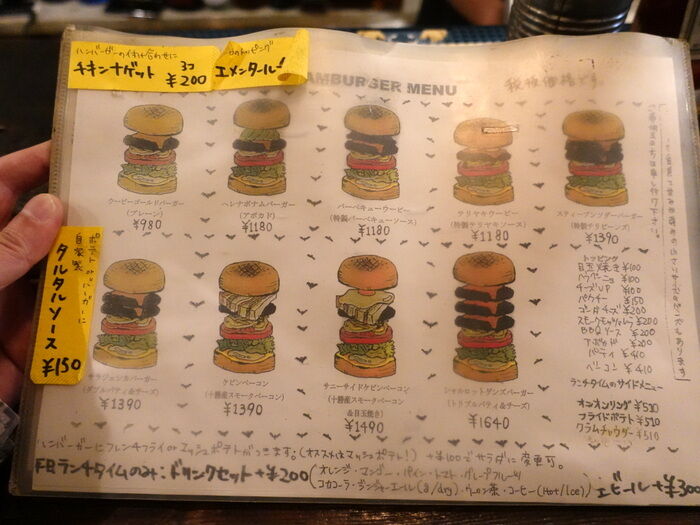 ハンバーガーの付け合わせに
チキンナゲット 3コ ¥200
トッピング
エメンタール!
HAMBURGER MENU
税抜価格です。
ウーピーゴールドバーガー
(プレーン)
¥980
ヘレナボナムバーガー
(アボカド)
¥1180
バーベキューウーピー
(特製バーベキューソース)
¥1180
テリヤキウーピー
(特製テリヤキソース)
¥1180
スティーブンソダーバーガー
(特製チリビーンズ)
¥1390
ポテト or バーガーに
自家製
タルタルソース
¥150
サラジェシカバーガー
(ダブルパティ&チーズ)
¥1390
ケビンベーコン
(十勝産スモークベーコン)
¥1390
サニーサイドケビンベーコン
(十勝産スモークベーコン
&目玉焼き)
¥1490
シャルロットゲンズバーガー
(トリプルパティ&チーズ)
¥1640
トッピング
目玉焼き ¥100
ハラペーニョ ¥100
チーズUP ¥100
パクチー ¥150
ゴルゴンチーズ ¥200
スモークモッツァレラ ¥200
BBQソース ¥200
アボカド ¥200
パティ ¥410
ベーコン ¥410
ランチタイムのサイドメニュー
オニオンリング ¥510
フライドポテト ¥510
クラムチャウダー ¥510
ハンバーガーにフレンチフライorマッシュポテトがつきます。(オススメはマッシュポテト!) +¥100でサラダに変更可。
平日ランチタイムのみ:ドリンクセット+¥200
(オレンジ・マンゴー・パイン・トマト・グレープフルーツ
コカコーラ・ジンジャーエイル(a/dry)・ウーロン茶・コーヒー(Hot/Ice))
生ビール+¥300